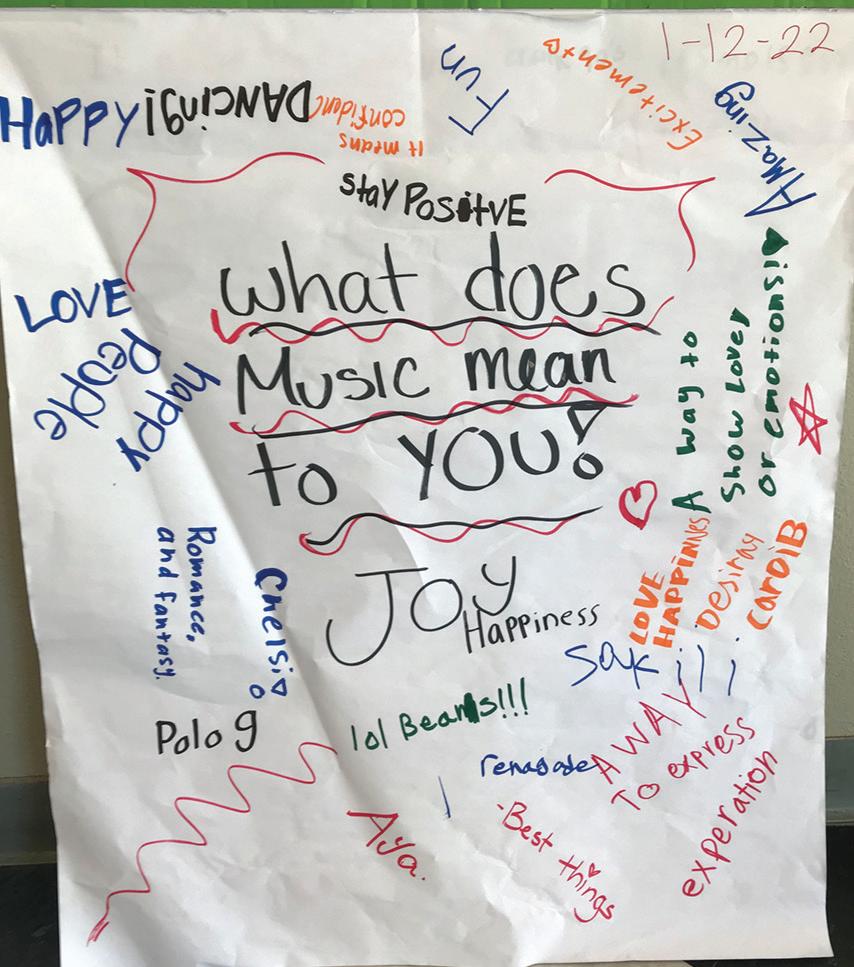 1-12-22
Happy
DANCing!
It means
confident
Fun
Excitement
AMaZing
stay PositvE
what does
Music mean
to YOU!
LOVE
happy
People
A way to
Show Love,
or emotions!
Romance,
and fantasy.
Chelsi
JOY
Happiness
LOVE
HAPPINNES
Desiray
CardiB
Sakilii
Polo g
lol Beans!!!
renagade
A WAY
To express
experation
Aya.
Best things